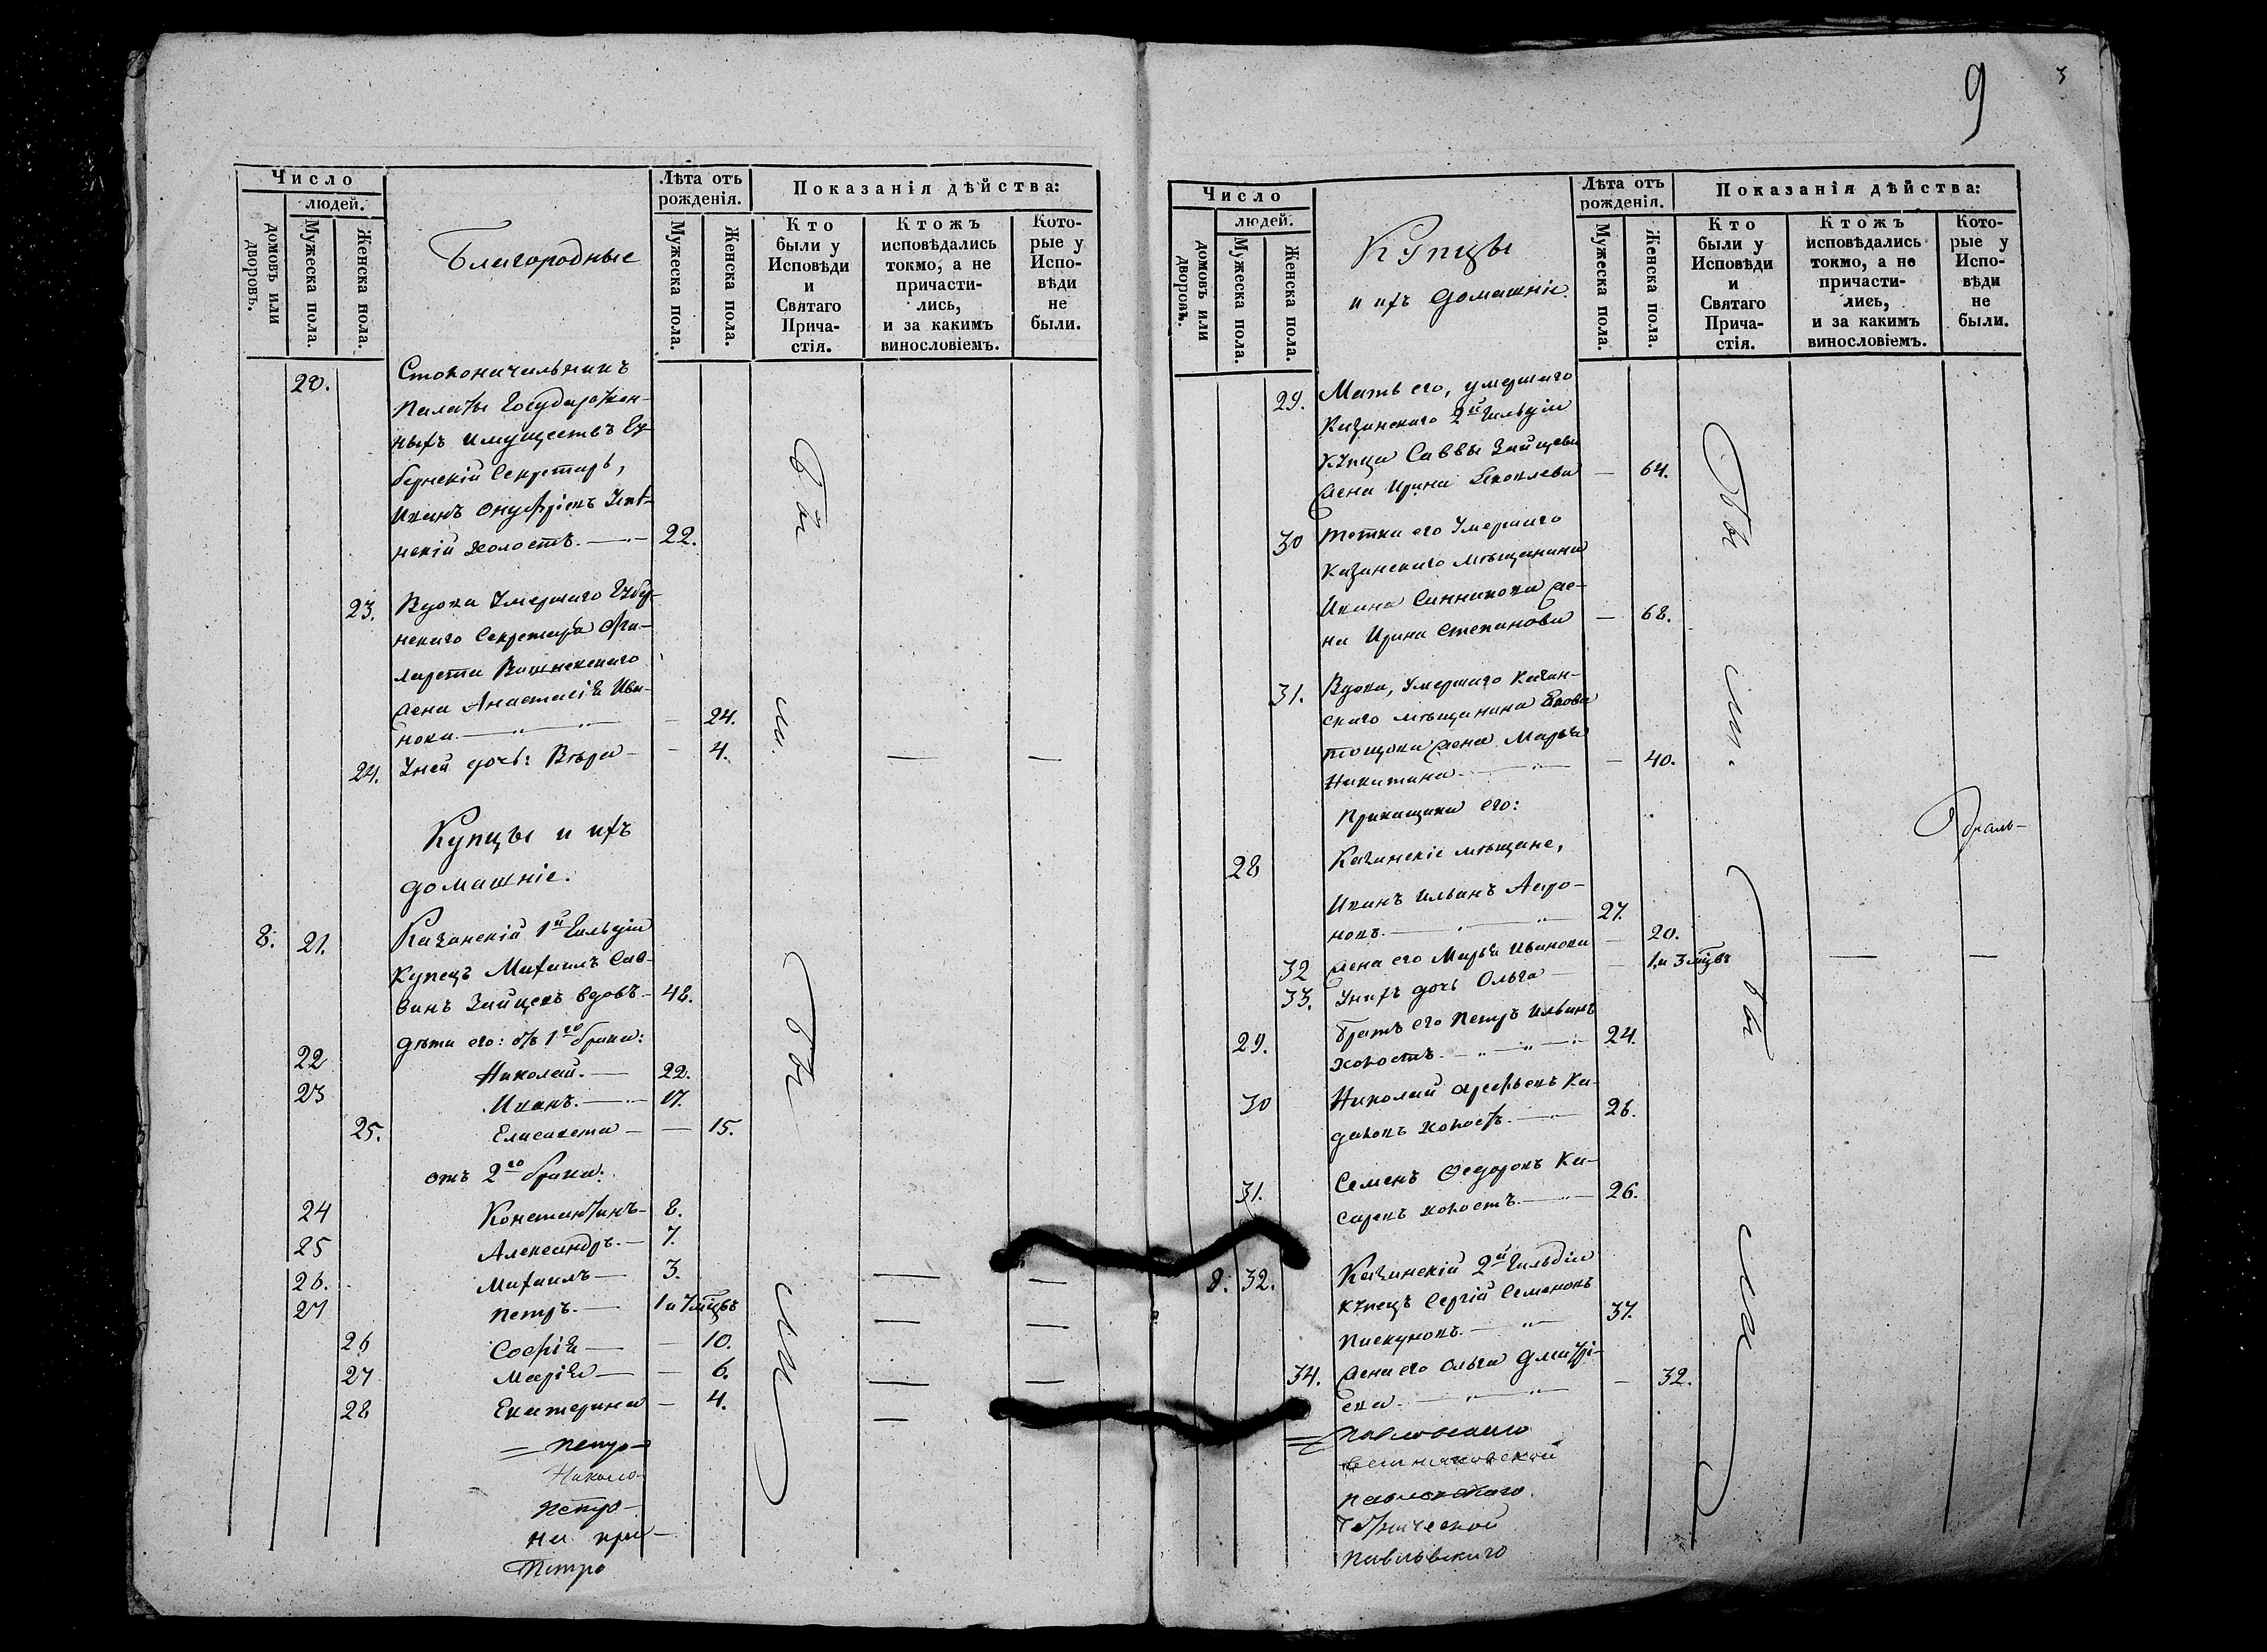 Число
людей.
домовъ или дворовъ.
Мужеска пола.
Женска пола.
Благородные
Лѣта отъ рожденія.
Мужеска пола.
Женска пола.
Показанія дѣйства:
Кто были у Исповѣди и Святаго Прича- стія.
Ктожъ исповѣдались токмо, а не причасти- лись, и за какимъ винословіемъ.
Кото- рые у Испо- вѣди не были.
20. Столоначальникъ
Палаты Государствен-
ныхъ имуществъ Гу-
бернскій Секретарь,
Иванъ Онуфріевъ
нскій холостъ. — 22.
23. Вдова Умершаго Губер-
нскаго Секретаря Фи-
ларета Вишневскаго
жена Анастасія Ива-
нова. — 24.
24. У ней дочь: Вѣра — 4.
Бы
ли.
Купцы и ихъ
домашніе.
8. 21. Казанскій 1й Гильдіи
Купецъ Михаилъ Сав-
винъ Зайцевъ вдовъ — 48.
дѣти его: отъ 1го брака:
22 Николай. — 22.
23 Иванъ. — 17.
25. Елисавета — 15.
отъ 2го брака:
24 Константинъ — 8.
25 Александръ. — 7.
26. Михаилъ — 3.
27 Петръ. — 1 и 7 мцвъ
26 Софія — 10.
27 Марія — 6.
28 Екатерина — 4.
Бы
ли
= Петро-
Николо-
Петро-
на при-
Петро
9
3
Число
людей.
домовъ или дворовъ.
Мужеска пола.
Женска пола.
Купцы
и ихъ домашніе.
Лѣта отъ рожденія.
Мужеска пола.
Женска пола.
Показанія дѣйства:
Кто были у Исповѣди и Святаго Прича- стія.
Ктожъ исповѣдались токмо, а не причасти- лись, и за какимъ винословіемъ.
Кото- рые у Испо- вѣди не были.
29. Мать его, умершаго
Казанскаго 2й Гильдіи
Купца Саввы Зайцева
жена Ирина Яковлева — 64.
30 Тетка его Умершаго
Казанскаго мѣщанина
Ивана Санникова же-
на Ирина Степанова — 68.
31. Вдова, Умершаго Казан-
скаго мѣщанина Якова
Тощова жена Марья
Никитина — 40.
Бы
ли.
Прикащики его:
28 Казанскіе мѣщане,
Иванъ Ильинъ Авро-
новъ. — 27.
32 жена его Марья Иванова — 20.
33. У нихъ дочь Ольга — 1 и 3 мцвъ
29. братъ его Петръ Ильинъ
холостъ. — 24.
30 Николай Арефьевъ Ка-
даковъ холостъ. — 26.
31. Семенъ Ѳедоровъ Ка-
саревъ холостъ. — 26.
8. 32. Казанскій 2й Гильдіи
Купецъ Сергій Семеновъ
Пискуновъ. — 37.
34. жена его Ольга Дмитрі-
ева — 32.
Бы
ли
= Павловскаго
Павловскаго
Павловскаго